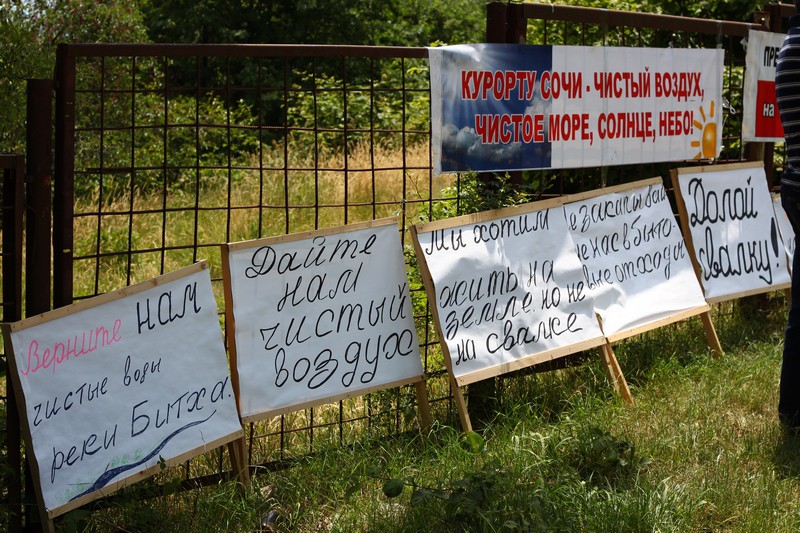 КУРОРТУ СОЧИ - ЧИСТЫЙ ВОЗДУХ,
ЧИСТОЕ МОРЕ, СОЛНЦЕ, НЕБО!
на
Верните нам
чистые воды
реки Битха.
Дайте
нам
чистый
воздух
Мы хотим
жить на
земле, но не
на свалке
закапывай
нас в быто-
вые отходы
Долой
свалку!